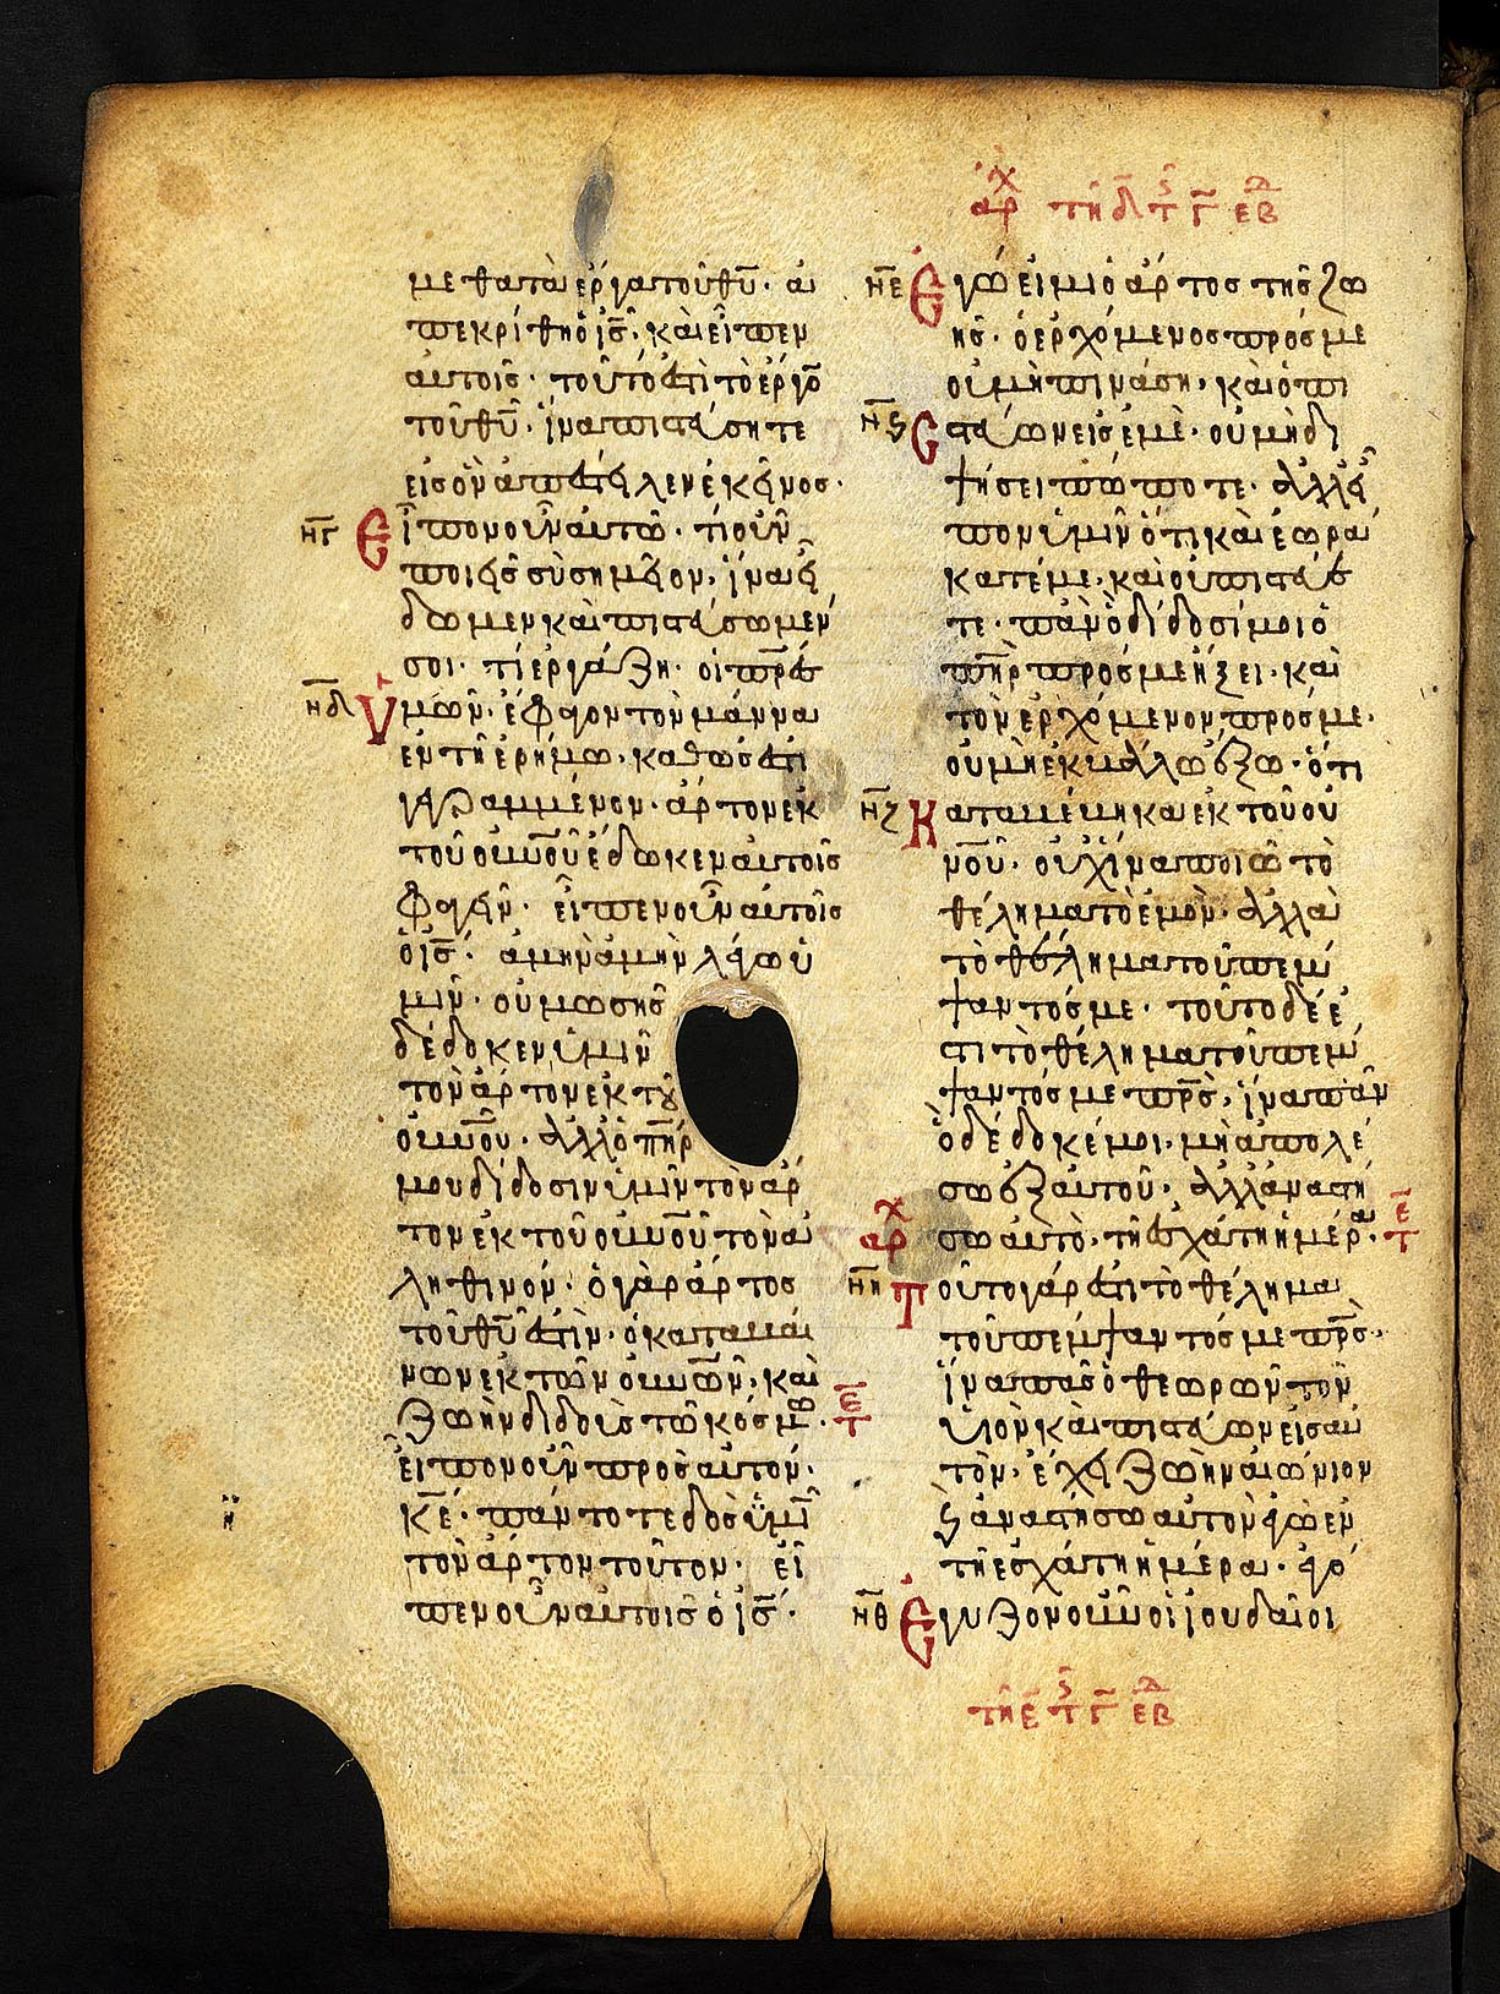 αρχ τη δ τ ς γ εβδ
μεθα τὰ ἔργα τοῦ θυ̅. ἀ
πεκρίθη ὁ ις̅. καὶ εἶπεν
αὐτοῖς. τοῦτό ἐστι τὸ ἔργο̅
τοῦ θυ̅. ἵνα πιστεύσητε
εἰς ὃν ἀπέστειλεν ἐκεῖνος.
νγ Εἶπον οὖν αὐτῶ. τί οὖν
ποιεῖς σὺ σημεῖον, ἵνα εἴ
δωμεν καὶ πιστεύσωμέν
σοι. τί ἐργάζη. οἱ πρ̅ες
νδ ὑμῶν. ἔφαγον τὸ μάννα
ἐν τῆ ἐρήμω. καθώς ἐστι
γεγραμμένον. ἄρτον ἐκ
τοῦ οὐνοῦ ἔδωκεν αὐτοῖς
φαγεῖν. εἶπεν οὖν αὐτοῖς
ὁ ις̅. ἀμὴν ἀμὴν λέγω ὑ
μῖν. οὐ μωσῆς
δέδοκεν ὑμῖν
τὸν ἄρτον ἐκ τοῦ
οὐνοῦ. ἀλλ ὁ πη̅ρ
μου δίδοσιν ὑμῖν τὸν ἄρ
τον ἐκ τοῦ οὐνοῦ τὸν ἀ
ληθινόν. ὁ γὰρ ἄρτος
τοῦ θυ̅ ἐστὶν. ὁ καταβαί
νων ἐκ τῶν οὐνῶν, καὶ
ζωὴν διδοὺς τῶ κόσμω. τε̅
εἶπον οὖν πρὸς αὐτόν.
κε̅. πάντοτε δὸς ἡμῖ̅
τὸν ἄρτον τοῦτον. εἶ
πεν οὖν αὐτοῖς ὁ ις̅.
νε Ἐγώ εἰμι ὁ ἄρτος τῆς ζω
ῆς. ὁ ἐρχόμενος πρός με
οὐ μὴ πινάση, καὶ ὁ πι
νς στεύων εἰς ἐμὲ. οὐ μὴ δι
ψήσει πώποτε. ἀλλ εἶ
πον ὑμῖν ὅτι καὶ ἑωρά
κατέ με, καὶ οὐ πιστεύε
τε. πᾶν ὃ δίδοσί μοι ὁ
πη̅ρ πρός με ἥξει. καὶ
τὸν ἐρχόμενον πρός με.
οὐ μὴ ἐκβάλλω ἔξω. ὅτι
νζ Καταβέβηκα ἐκ τοῦ οὐ
νοῦ. οὐχ ἵνα ποιῶ τὸ
θέλημα τὸ ἐμόν. ἀλλὰ
τὸ θέλημα τοῦ πέμ
ψαντός με. τοῦτο δέ ἐ
στι τὸ θέλημα τοῦ πέμ
ψαντός με πρ̅ς, ἵνα πᾶν
ὃ δέδοκέ μοι. μὴ ἀπολέ
σω ἐξ αὐτοῦ. ἀλλ ἀναστή
αρχ σω αὐτὸ. τῆ ἐσχάτη ἡμέρα. τε̅
νη Τοῦτο γάρ ἐστι τὸ θέλημα
τοῦ πέμψαντός με πρ̅ς.
ἵνα πᾶς ὁ θεωρῶν τὸν
υἱὸν καὶ πιστεύων εἰς αὐ
τὸν. ἔχει ζωὴν αἰώνιον
ϗ ἀναστήσω αὐτὸν ἐγὼ ἐν
τῆ ἐσχάτη ἡμέρα. ἐγό
νθ Ἐγγυζον οὖν οἱ ἰουδαῖοι
τη ε τ ς γ εβδ